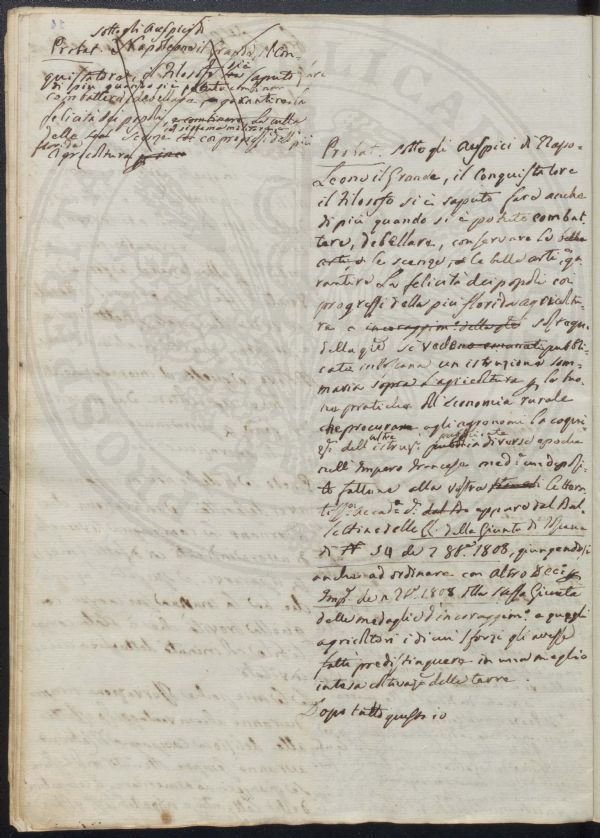 sotto gli Auspici di
Probat. Napoleone il Grande, il Con-
quistatore, il Filosofo si è saputo fare
di più quando si è potuto
combattere debellare garantire la
felicità dei popoli e combinare la
delle Scienze coi progressi della più
florida Agricoltura
Probat. sotto gli Auspici di Napo-
Leone il Grande, il Conquistatore
il Filosofo si è saputo fare anche
di più quando si è potuto combat-
tere, debellare, conservare le belle
arti e le scienze, e le belle arti, ga-
rantire la felicità dei popoli coi
progressi della più florida agricoltu-
ra e incoraggim.ti della quale sulle que
della quale si vedono emanati pubbli-
cata in Toscana un istruzione som-
maria sopra l'agricoltura p. le buo-
ne pratiche dell'Economia rurale
che procurare agli agronomi la cogni-
z.e dell'altre istruz.i pubblicate in diverse epoche
nell'Impero Francese med.e un deposi-
to fattone alla vostra Letterat
Accad.a apparo dal Bul-
lettino delle LL. della Giunta di Toscana
di N.o 54 de 7 8bre 1808, giungendosi
anche ad ordinare con altro Decr.
Imp. de 1808 alla stessa Giunta
delle medaglie d'incoraggim.o a quegli
agricoltori i di cui sforzi gli avesse
fatti predistinguere in una meglio
intesa coltivaz.e delle terre.
Dopo tutto questo io